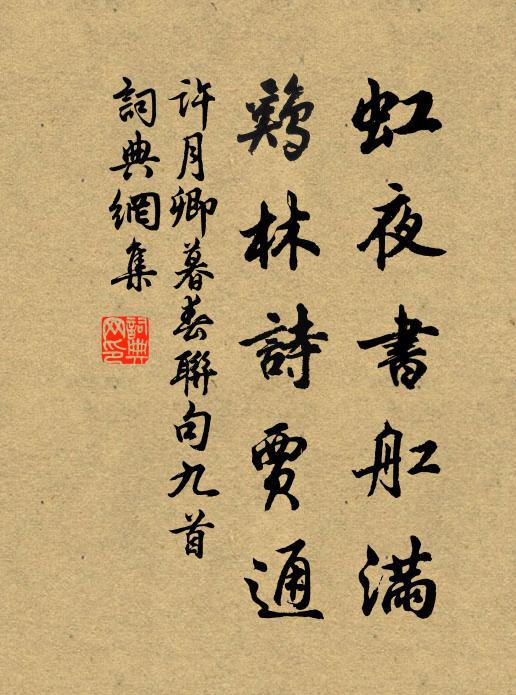 虹夜書舡滿
鷄林詩賈通
許月卿暮春聯句九首
詞典網集
詞典网印